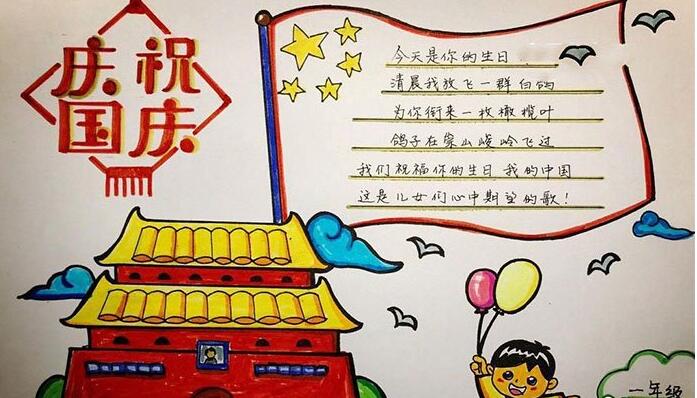 庆祝
国庆
今天是你的生日
清晨我放飞一群白鸽
为你衔来一枚橄榄叶
鸽子在崇山峻岭飞过
我们祝福你的生日 我的中国
这是儿女们心中期望的歌!
一年级